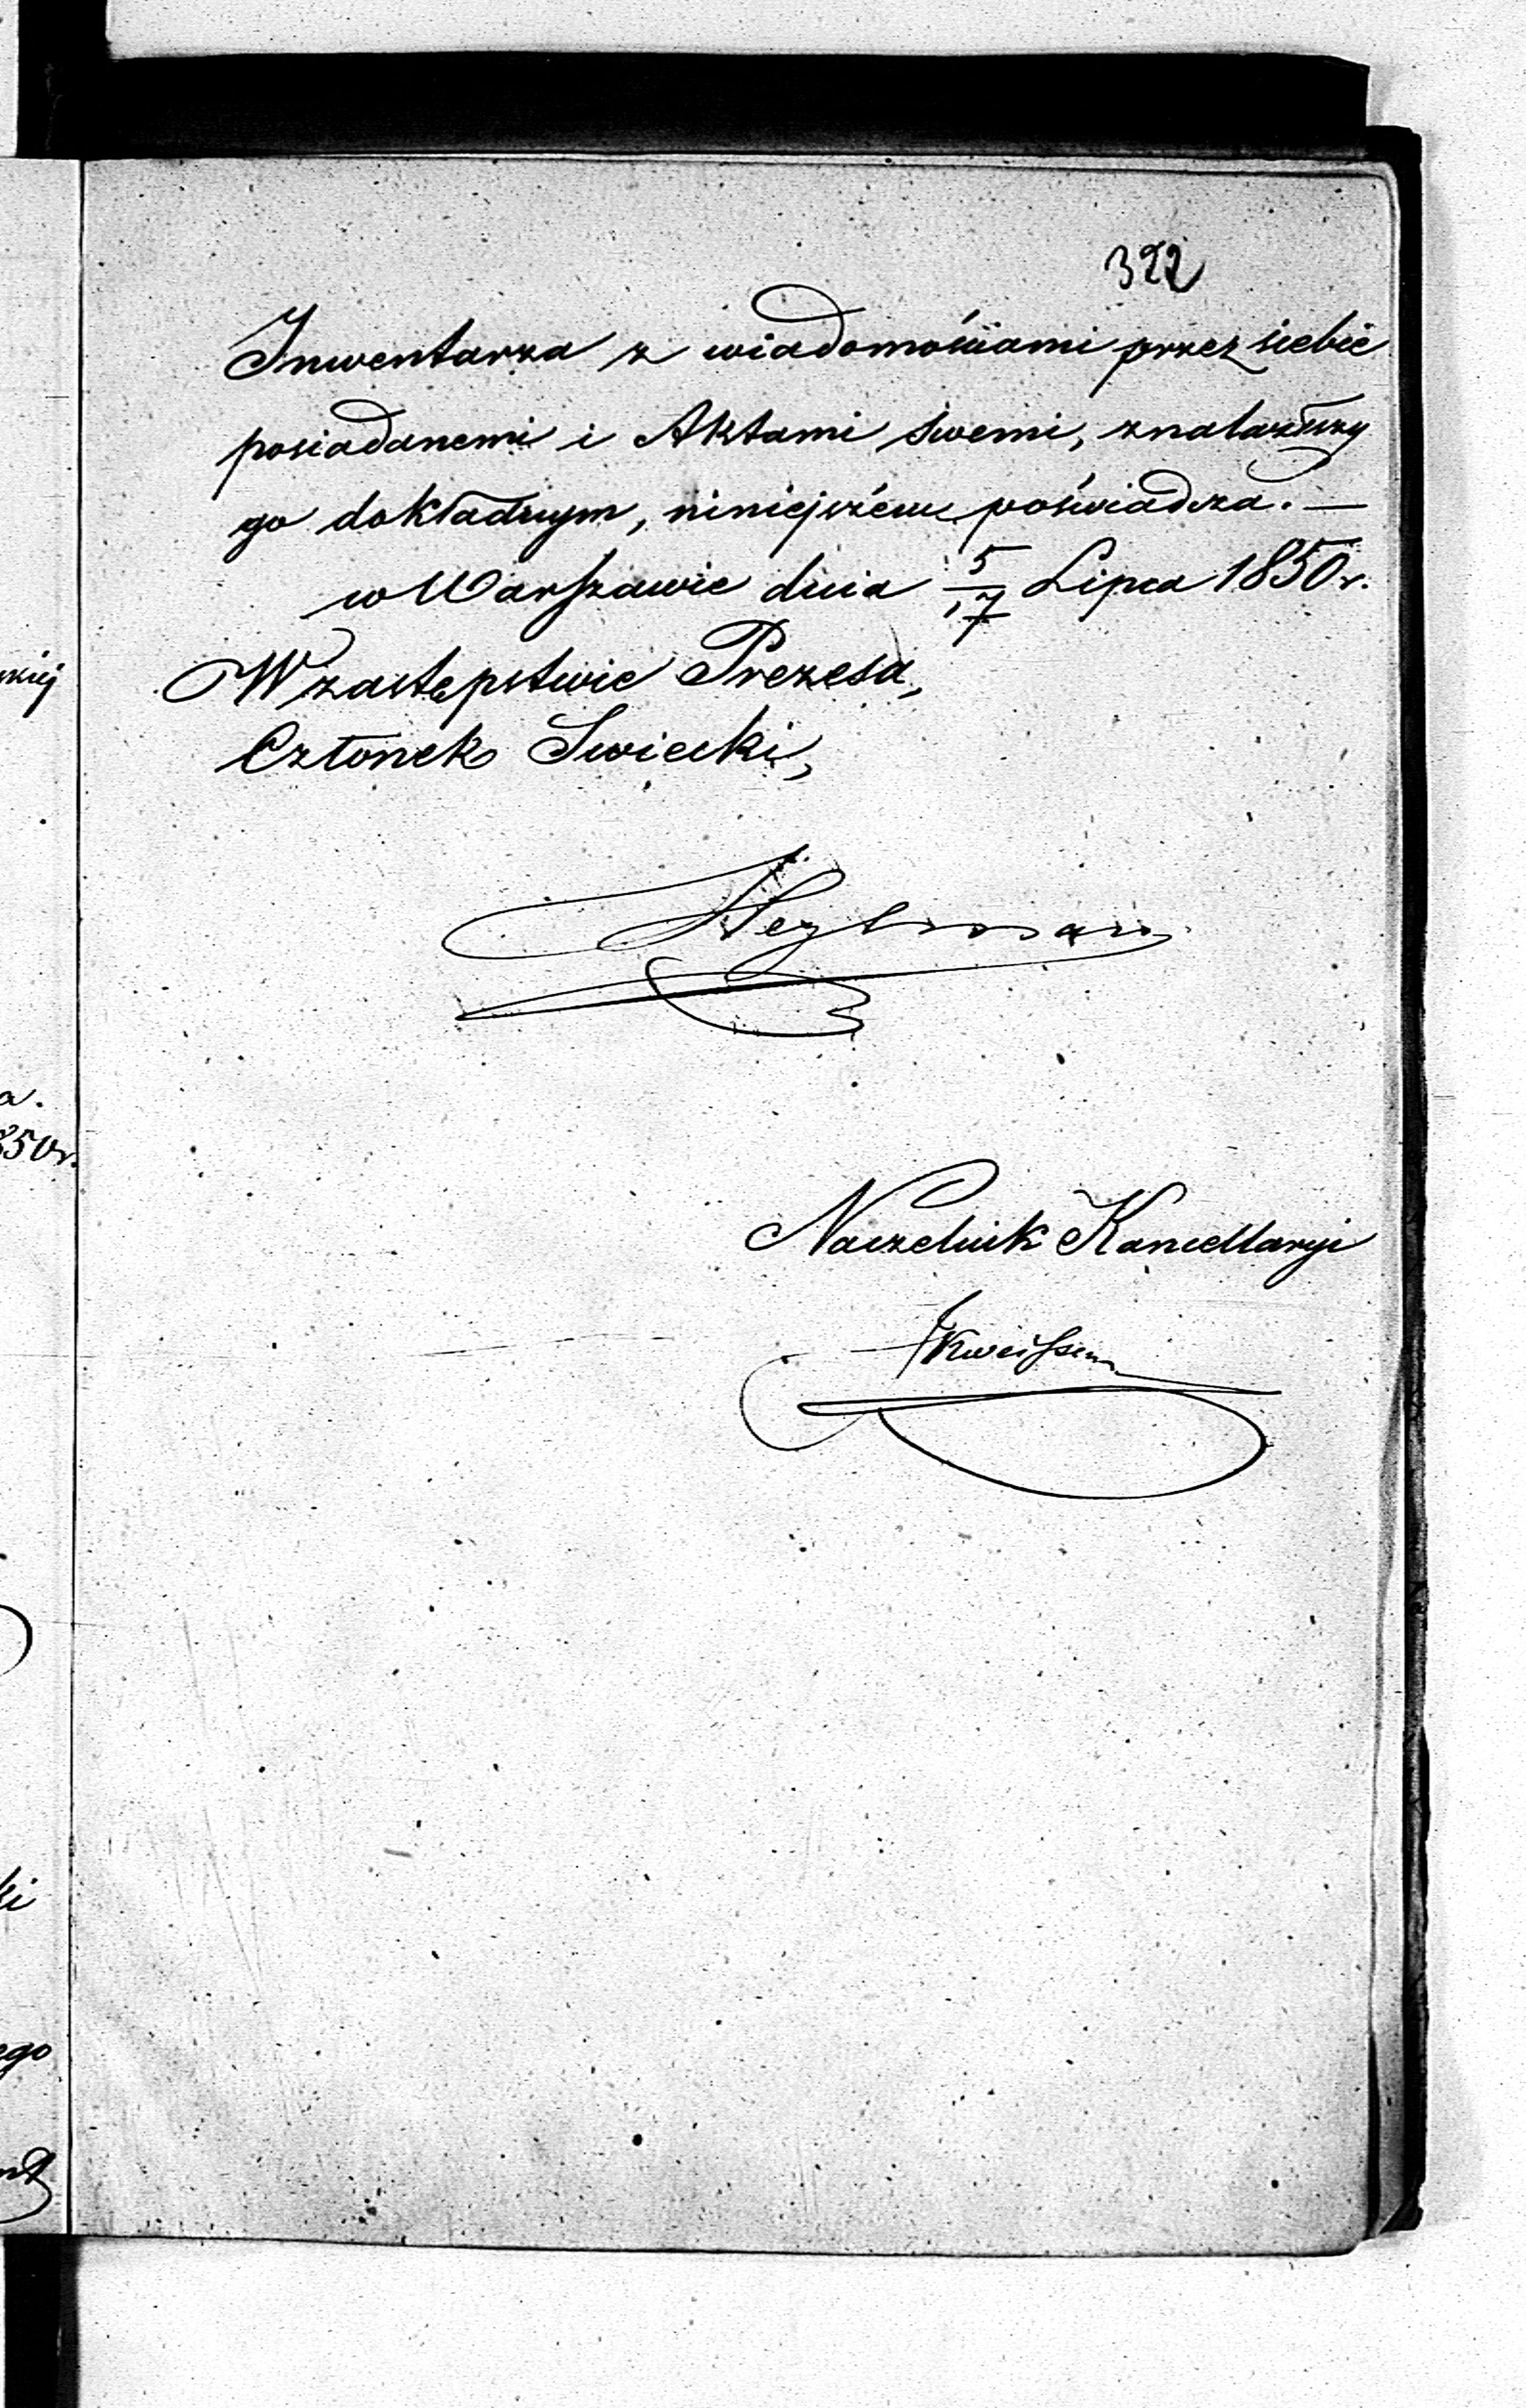 322
Inwentarza z wiadomościami przez siebie
posiadanemi i Aktami swemi, znalazłszy
go dokładnym, niniejszém poświadcza. —
w Warszawie dnia 5/17 Lipca 1850 r.
W zastępstwie Prezesa,
Członek Swiecki,
Heylman
Naczelnik Kancellaryi